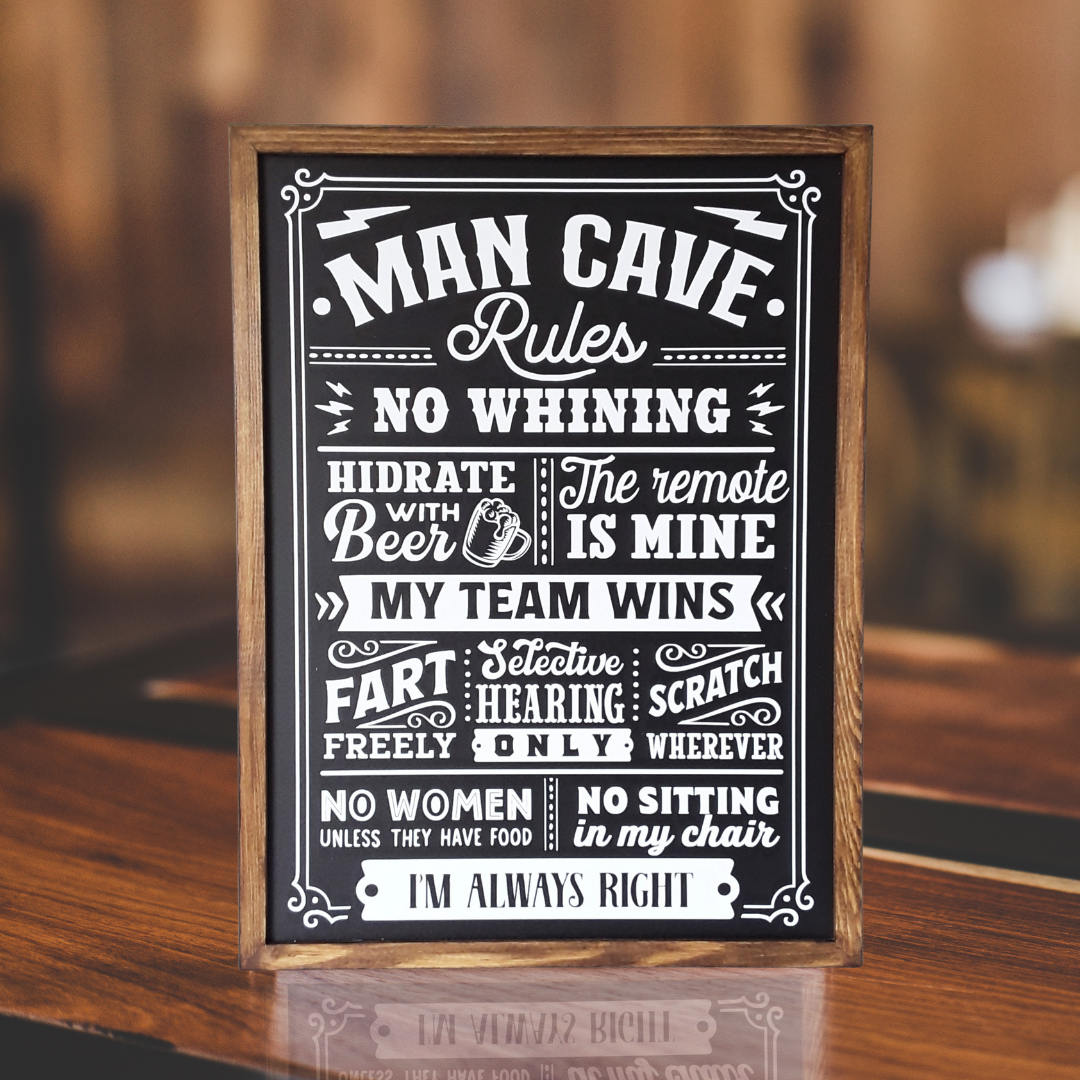 MAN CAVE
Rules
NO WHINING
HIDRATE
WITH
Beer
The remote
IS MINE
MY TEAM WINS
FART
FREELY
Selective
HEARING
ONLY
SCRATCH
WHEREVER
NO WOMEN
UNLESS THEY HAVE FOOD
NO SITTING
in my chair
I'M ALWAYS RIGHT